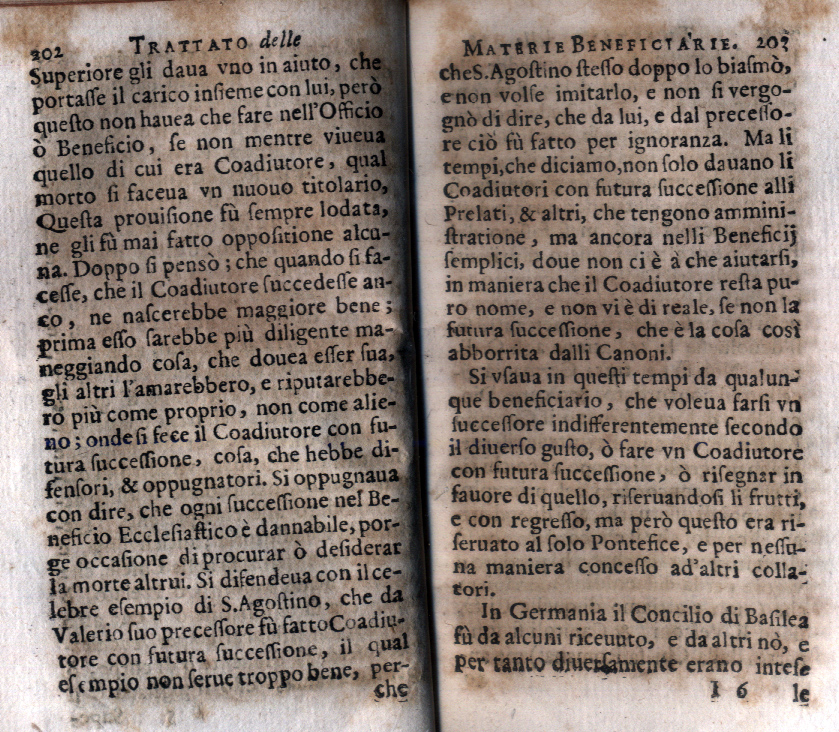 202 TRATTATO delle
Superiore gli daua vno in aiuto, che
portaſſe il carico inſieme con lui, però
queſto non hauea che fare nell'Officio
ò Beneficio, ſe non mentre viueua
quello di cui era Coadiutore, qual
morto ſi faceua vn nuouo titolario,
Queſta prouiſione fù ſempre lodata,
ne gli fù mai fatto oppoſitione alcu-
na. Doppo ſi pensò; che quando ſi fa-
ceſſe, che il Coadiutore ſuccedeſſe an-
co, ne naſcerebbe maggiore bene;
prima eſſo ſarebbe più diligente ma-
neggiando coſa, che douea eſſer ſua,
gli altri l'amarebbero, e riputarebbe-
ro più come proprio, non come alie-
no; onde ſi fece il Coadiutore con fu-
tura ſucceſſione, coſa, che hebbe di-
fenſori, & oppugnatori. Si oppugnaua
con dire, che ogni ſucceſſione nel Be-
neficio Eccleſiaſtico è dannabile, por-
ge occaſione di procurar ò deſiderar
la morte altrui. Si difendeua con il ce-
lebre eſempio di S. Agoſtino, che da
Valerio ſuo preceſſore fù fatto Coadiu-
tore con futura ſucceſſione, il qual
eſempio non ſerue troppo bene, per-
che
MATERIE BENEFICIARIE. 203
che S. Agoſtino ſteſſo doppo lo biaſmò,
e non volſe imitarlo, e non ſi vergo-
gnò di dire, che da lui, e dal preceſſo-
re ciò fù fatto per ignoranza. Ma li
tempi, che diciamo, non ſolo dauano li
Coadiutori con futura ſucceſſione alli
Prelati, & altri, che tengono ammini-
ſtratione, ma ancora nelli Beneficij
ſemplici, doue non ci è à che aiutarſi,
in maniera che il Coadiutore reſta pu-
ro nome, e non vi è di reale, ſe non la
futura ſucceſſione, che è la coſa così
abborrita dalli Canoni.
Si vſaua in queſti tempi da qualun-
que beneficiario, che voleua farſi vn
ſucceſſore indifferentemente ſecondo
il diuerſo guſto, ò fare vn Coadiutore
con futura ſucceſſione, ò riſegnar in
fauore di quello, riſeruandoſi li frutti,
e con regreſſo, ma però queſto era ri-
ſeruato al ſolo Pontefice, e per neſſu-
na maniera conceſſo ad'altri colla-
tori.
In Germania il Concilio di Baſilea
fù da alcuni riceuuto, e da altri nò, e
per tanto diuerſamente erano inteſe
I 6 le